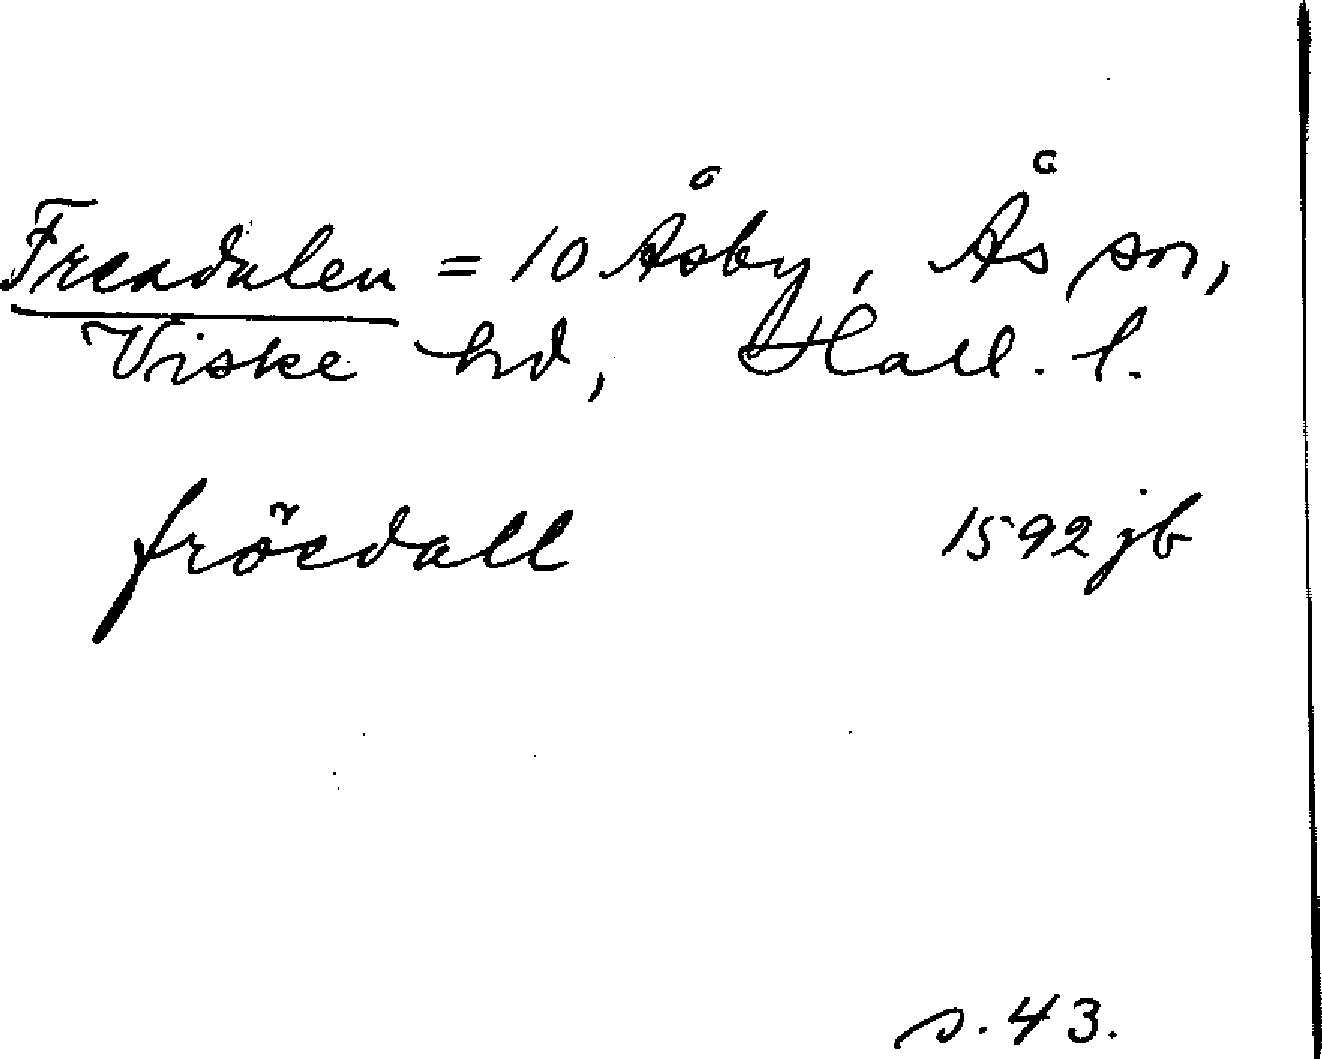 Freadalen = 10 Åsby, Ås sn,
Viske hd, Hall. l.
fröedall 1592 jb
s. 43.